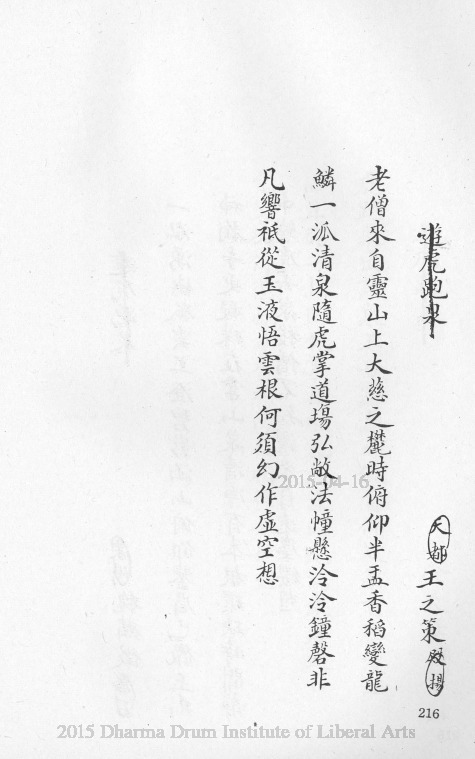 遊虎跑泉
天都王之策殿揚
老僧來自靈山上大慈之麓時俯仰半盂香稻變龍
鱗一派清泉隨虎掌道場弘敞法幢懸泠泠鐘磬非
凡響祇從玉液悟雲根何須幻作虛空想
216
2015-04-16
2015 Dharma Drum Institute of Liberal Arts